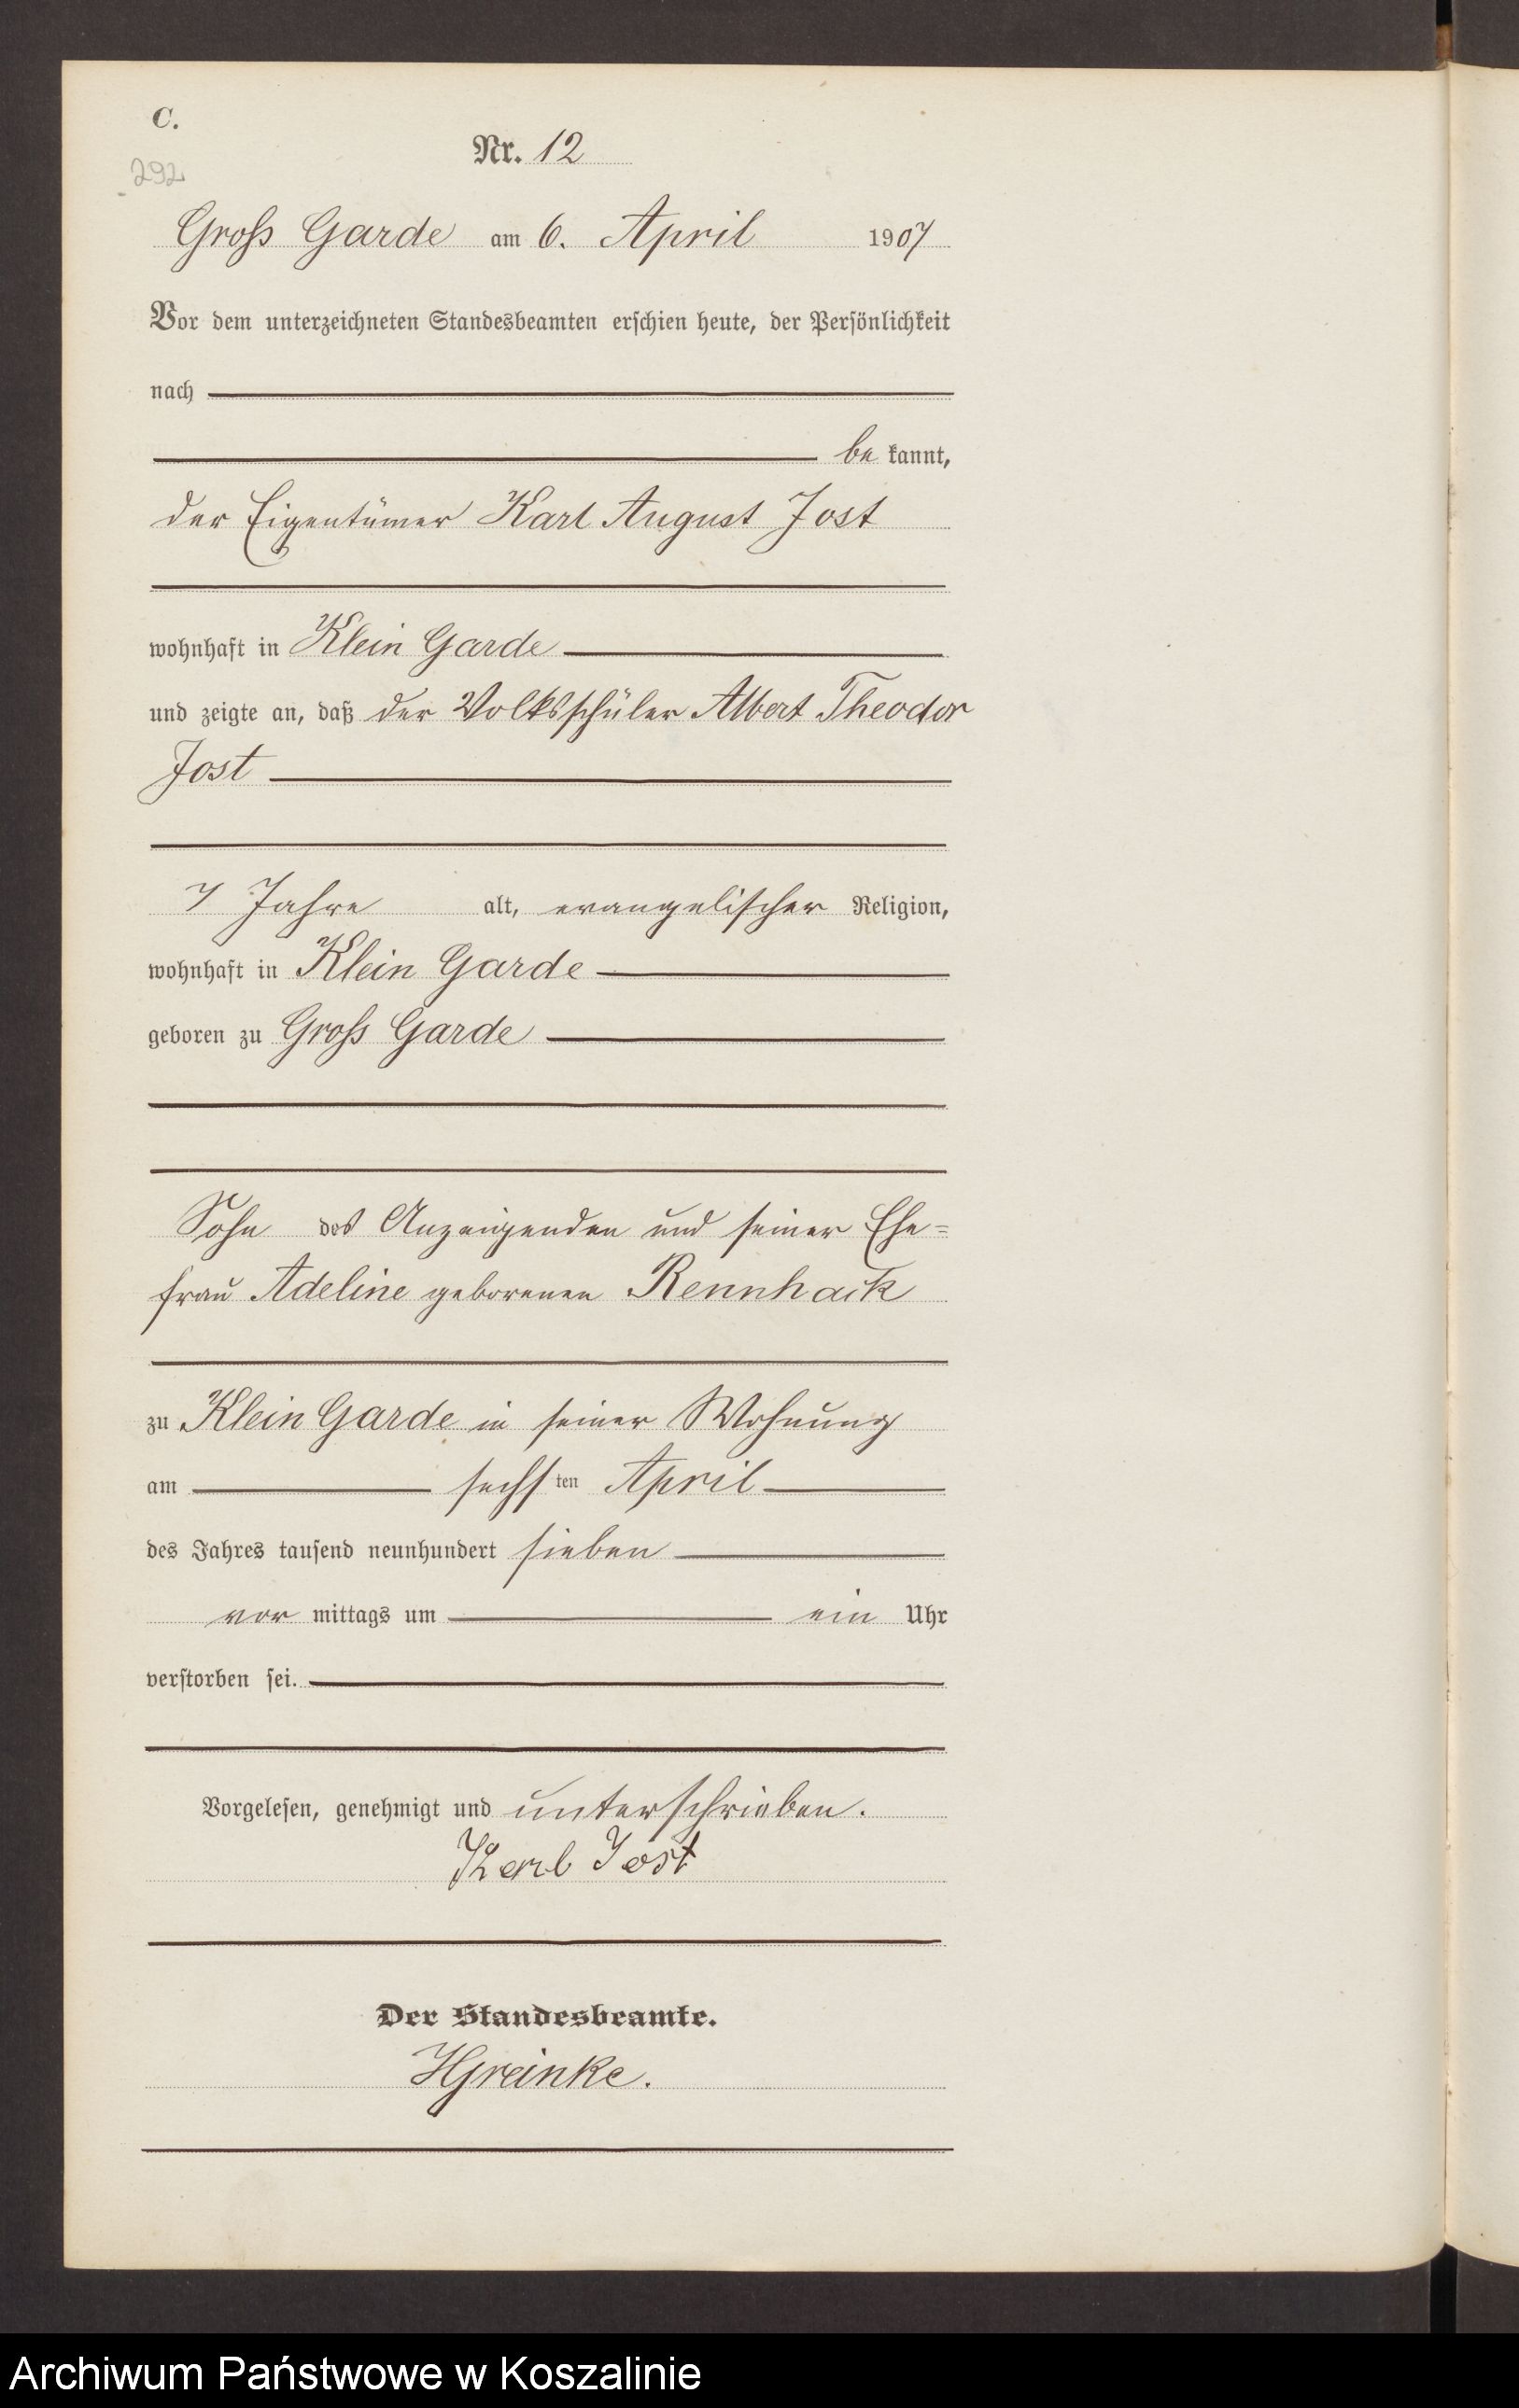 C.
Nr. 12
292
Groß Garde am 6. April 1907
Vor dem unterzeichneten Standesbeamten erschien heute, der Persönlichkeit
nach
be kannt,
der Eigentümer Karl August Jost
wohnhaft in Klein Garde
und zeigte an, daß der Volksschüler Albert Theodor
Jost
7 Jahre alt, evangelischer Religion,
wohnhaft in Klein Garde
geboren zu Groß Garde
Sohn des Anzeigenden und seiner Ehe=
frau Adeline geborenen Rennhack
zu Klein Garde in seiner Wohnung
am sechsten April
des Jahres tausend neunhundert sieben
vor mittags um ein Uhr
verstorben sei.
Vorgelesen, genehmigt und unterschrieben.
Karl Jost
Der Standesbeamte.
HGreinke.
Archiwum Państwowe w Koszalinie